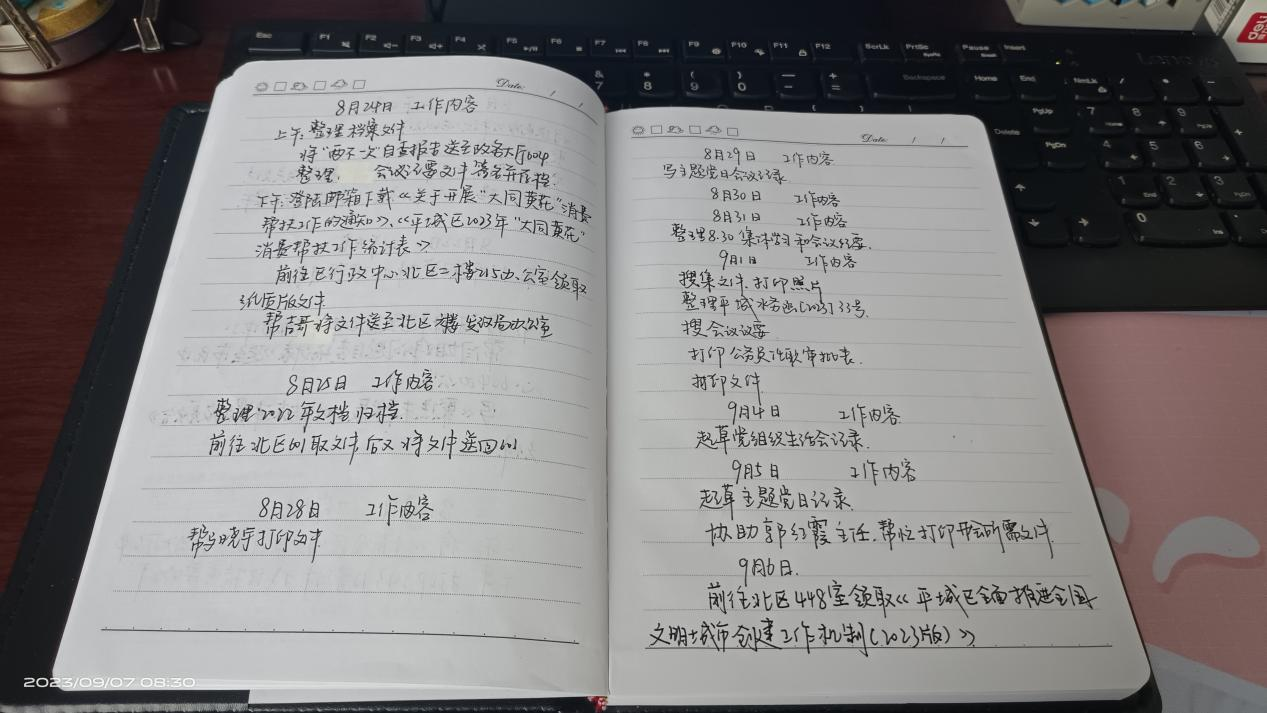 Date: / /
8月24日 工作内容
上午: 整理档案文件
将"两不一欠"自查报告送至政务大厅604
整理, 会议记要文件签名并存档.
下午: 登陆邮箱下载《关于开展"大同黄花"消费
帮扶工作的通知》、《平城区2023年"大同黄花"
消费帮扶工作统计表》
前往区行政中心北区二楼215办公室领取
纸质版文件
帮吉哥将文件送至北区 楼发改局办公室
8月25日 工作内容
整理2022年文档归档.
前往北区 取文件,后又将文件送回
8月28日 工作内容
帮马晓宇打印文件
Date: / /
8月29日 工作内容
写主题党日会议记录.
8月30日 工作内容
8月31日 工作内容
整理8.30集体学习和会议纪要.
9月1日 工作内容
搜集文件.打印照片
整理平城水务函[2023]33号.
搜会议议要
打印公务员 审批表.
打印文件.
9月4日 工作内容.
起草党组织生活会记录.
9月5日 工作内容
起草主题党日记录.
协助郭红霞主任,帮忙打印开会所需文件.
9月6日.
前往北区448室领取《平城区全面推进全国
文明城市创建工作机制(2023版)》
2023/09/07 08:30
Esc F1 F2 F3 F4 F5 F6 F7 F8 F9 F10 F11 F12 ScrLk PrtSc Pause Break Insert
Backspace Home End NumLk
Delete PgUp PgDn
Lenovo
deli